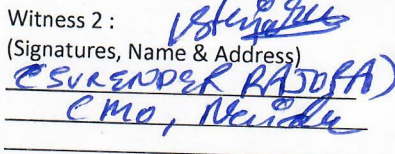 Witness 2 :
(Signatures, Name & Address)
(SURENDER RAJORA)
CMO,